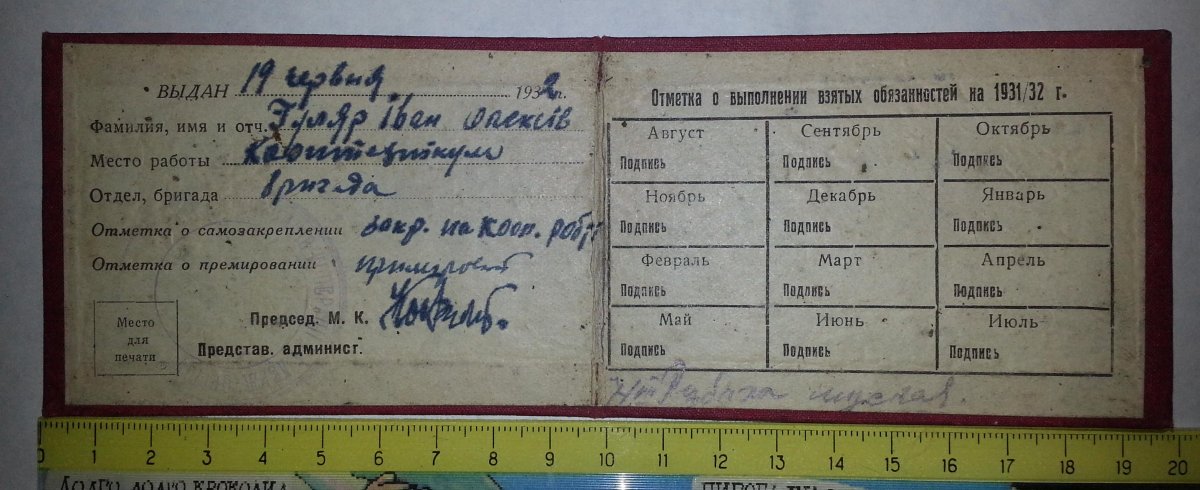 ВЫДАН 19 червня 1932 г.
Фамилия, имя и отч. Гуляр Іван Олексів
Место работы
Отдел, бригада бригада
Отметка о самозакреплении закр. на кооп. роб
Отметка о премировании
Председ. М. К.
Представ. админист.
Место
для
печати
Отметка о выполнении взятых обязанностей на 1931/32 г.
Август Сентябрь Октябрь
Подпись Подпись Подпись
Ноябрь Декабрь Январь
Подпись Подпись Подпись
Февраль Март Апрель
Подпись Подпись Подпись
Май Июнь Июль
Подпись Подпись Подпись
0 1 2 3 4 5 6 7 8 9 10 11 12 13 14 15 16 17 18 19 20
ДОЛГО, ДОЛГО КРОКОДИЛ